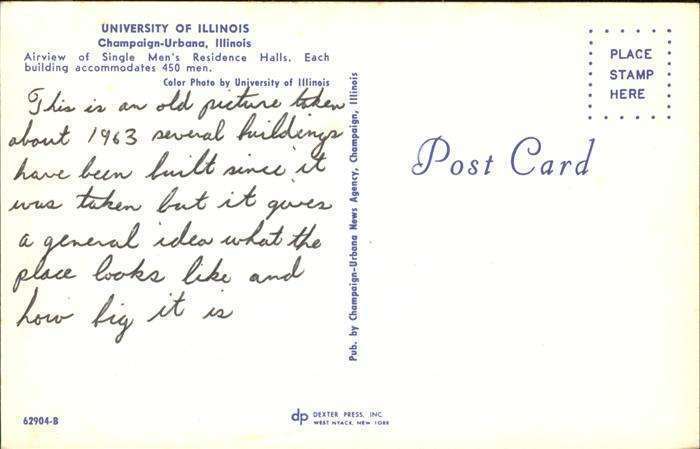 UNIVERSITY OF ILLINOIS
Champaign-Urbana, Illinois
Airview of Single Men's Residence Halls. Each
building accommodates 450 men.
Color Photo by University of Illinois
This is an old picture taken
about 1963 several buildings
have been built since it
was taken but it gives
a general idea what the
place looks like and
how big it is
62904-B
Pub. by Champaign-Urbana News Agency, Champaign, Illinois
dp DEXTER PRESS, INC.
WEST NYACK, NEW YORK
Post Card
PLACE
STAMP
HERE